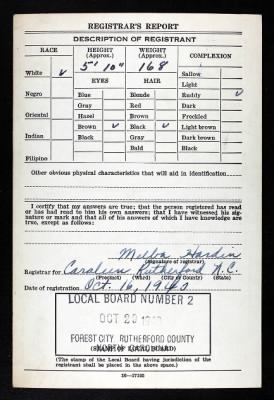 REGISTRAR'S REPORT
DESCRIPTION OF REGISTRANT
RACE HEIGHT (Approx.) WEIGHT (Approx.) COMPLEXION
5' 10" 168
White ✓ Sallow
EYES HAIR Light
Negro Blue Blonde Ruddy ✓
Gray Red Dark
Oriental Hazel Brown Freckled
Brown ✓ Black ✓ Light brown
Indian Black Gray Dark brown
Bald Black
Filipino
Other obvious physical characteristics that will aid in identification
I certify that my answers are true; that the person registered has read
or has had read to him his own answers; that I have witnessed his sig-
nature or mark and that all of his answers of which I have knowledge are
true, except as follows:
Melba Hardin
(Signature of registrar)
Registrar for Caroleen Rutherford N.C.
(Precinct) (Ward) (City or County) (State)
Date of registration Oct. 16, 1940
LOCAL BOARD NUMBER 2
OCT 20
FOREST CITY, RUTHERFORD COUNTY
NORTH CAROLINA
(STAMP OF LOCAL BOARD)
(The stamp of the Local Board having jurisdiction of the
registrant shall be placed in the above space.)